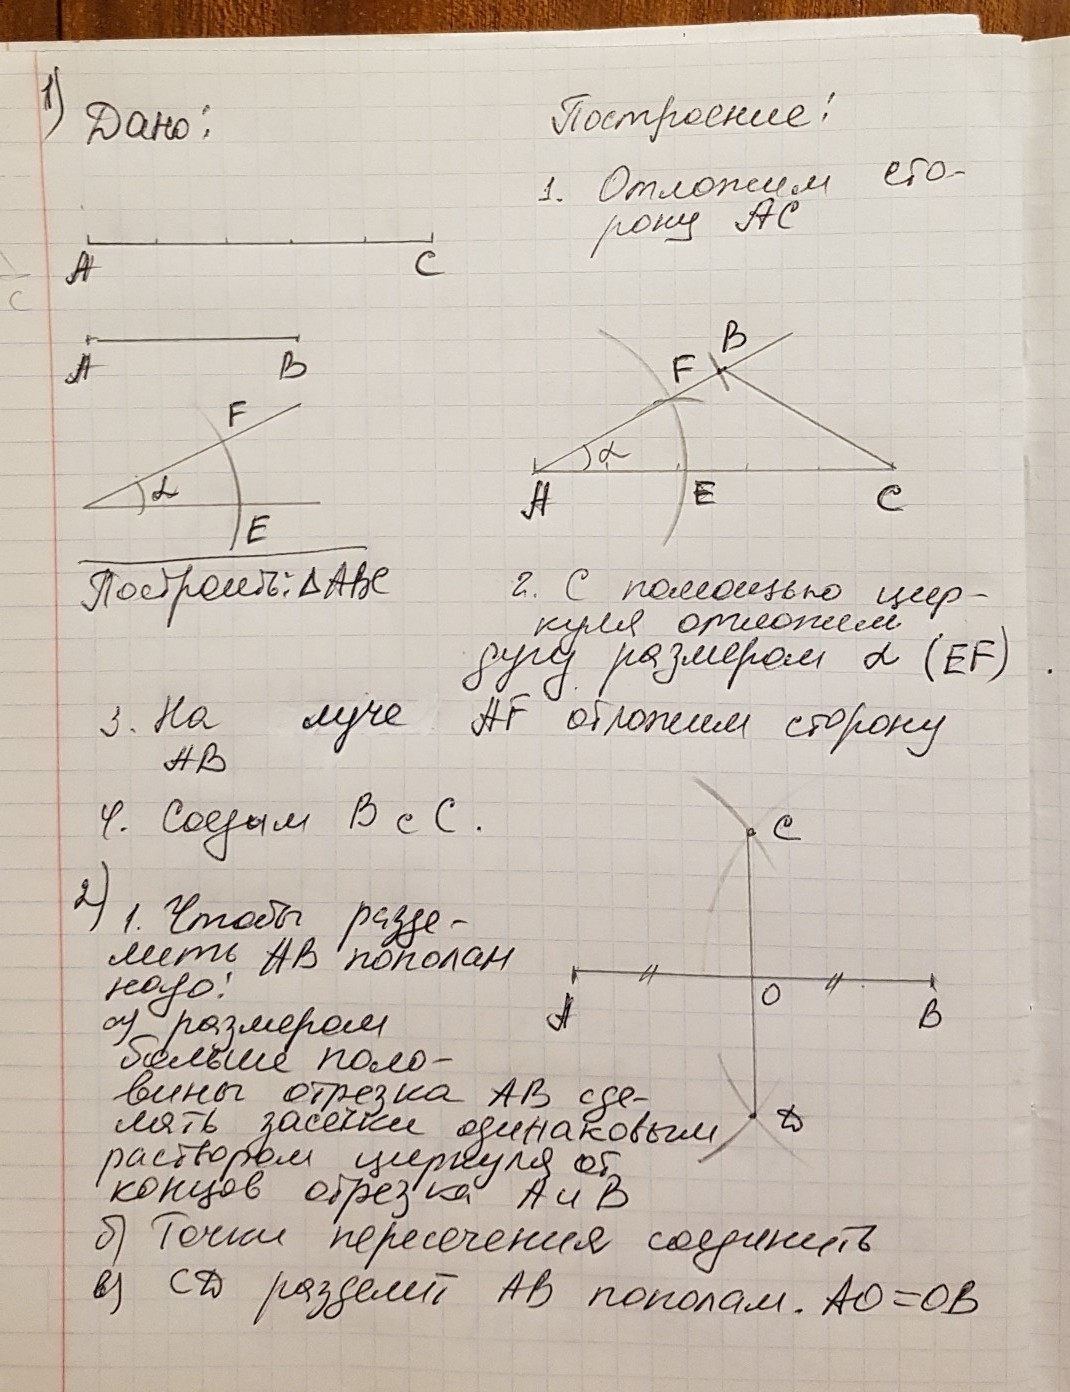 1)
Дано:
A C
A B
F
α
E
Построить: ΔABC
Построение:
1. Отложим сто-
рону AC
B
F
α
A E C
2. С помощью цир-
куля отложим
дугу размером α (EF)
3. На луче AF отложим сторону
AB
4. Соедим B с C.
2)
1. Чтобы разде-
лить AB пополам
надо:
а) размером
больше поло-
вины отрезка AB сде-
лять засечки одинаковым
раствором циркуля от
концов отрезка A и B
б) Точки пересечения соединить
в) CD разделит AB пополам. AO=OB
C
A O B
D